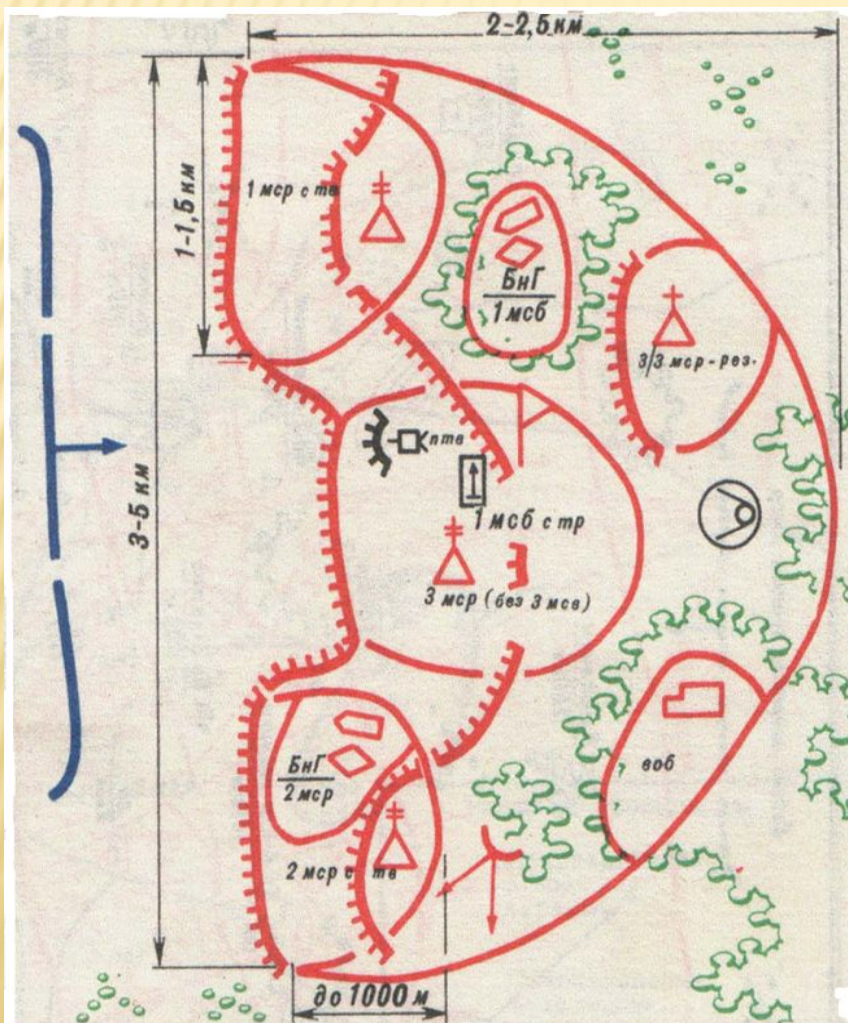 2-2,5 км
1-1,5 км
3-5 км
1 мср с тв
БнГ
1 мсб
3/3 мср-рез.
птв
1 мсб с тр
3 мср (без 3 мсв)
БнГ
2 мср
воб
2 мср с тв
до 1000 м